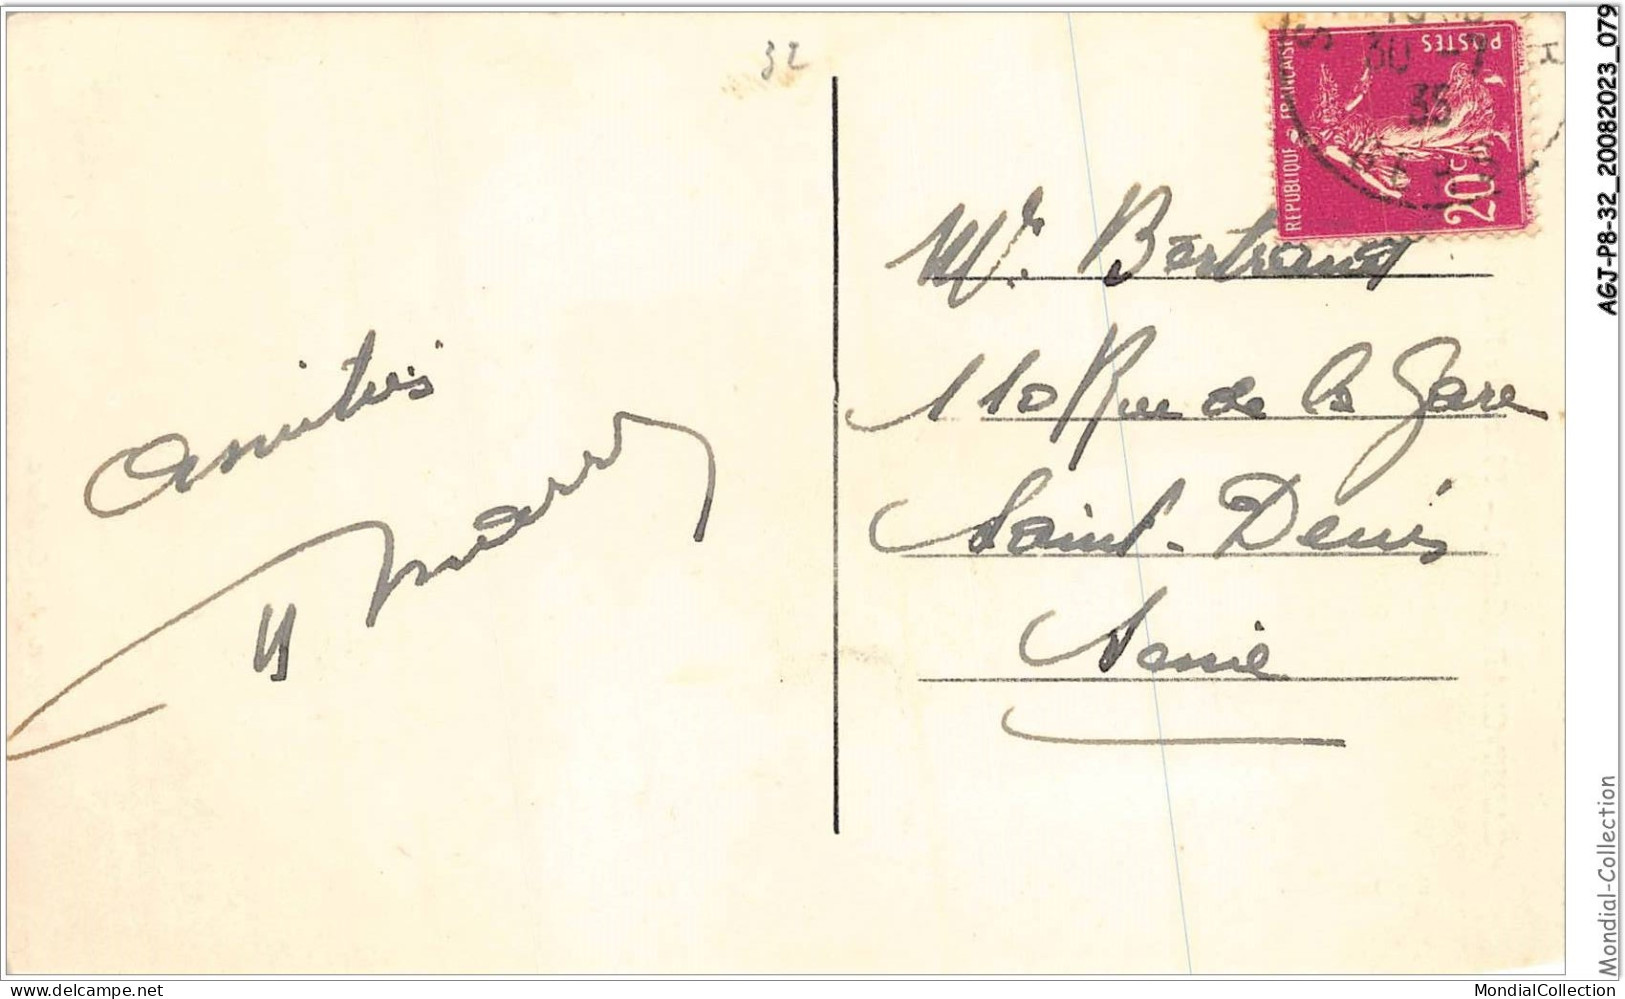 32
Amitiés
Mr. Bertrand
110 Rue de la Gare
Saint-Denis
Seine
REPUBLIQUE FRANCAISE
POSTES
20c
30 -7
35
AGJ-P8-32_20082023_079
Mondial-Collection
www.delcampe.net
MondialCollection